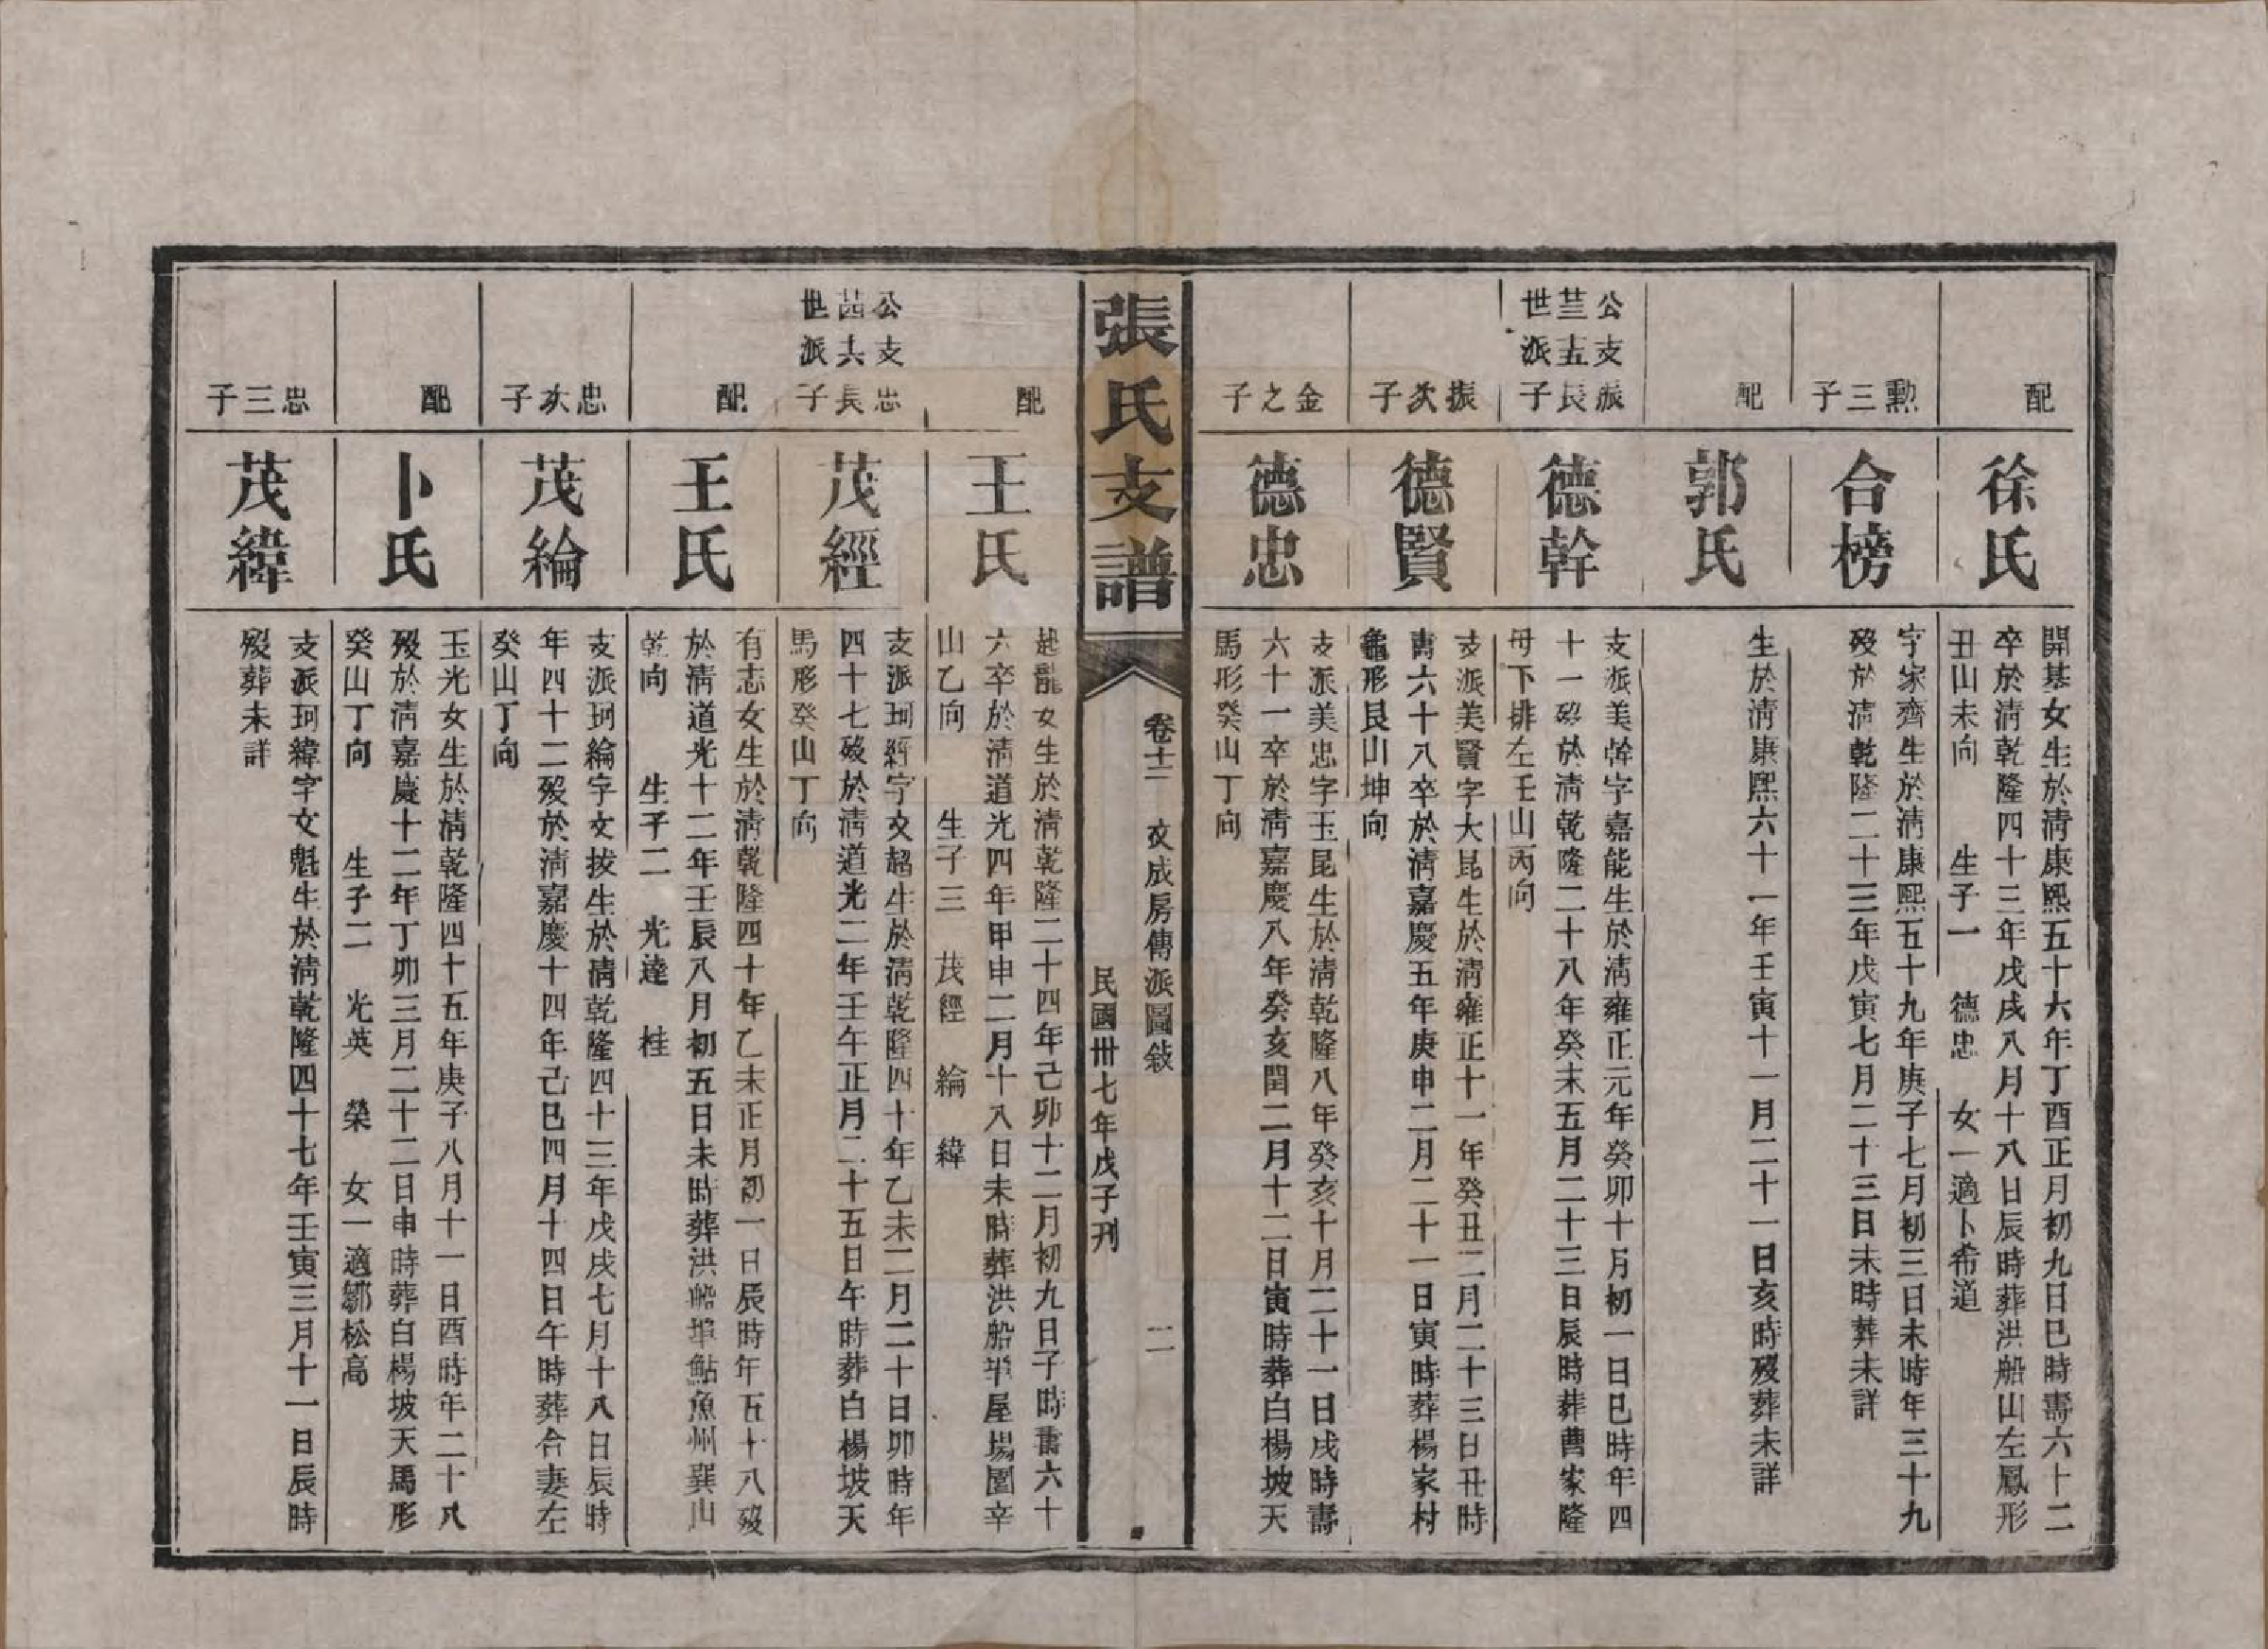 配
徐氏
開基女生於淸康熙五十六年丁酉正月初九日巳時壽六十二
卒於淸乾隆四十三年戊戌八月十八日辰時葬洪船山左鳳形
丑山未向　生子一　德忠　女一適卜希道
勲三子
合榜
字家齊生於淸康熙五十九年庚子七月初三日未時年三十九
歿於淸乾隆二十三年戊寅七月二十三日未時葬未詳
配
郭氏
生於淸康熙六十一年壬寅十一月二十一日亥時歿葬未詳
公支振
三十五長
世派子
德幹
支派美幹字嘉能生於淸雍正元年癸卯十月初一日巳時年四
十一歿於淸乾隆二十八年癸未五月二十三日辰時葬曹家隆
母下排左壬山丙向
振次子
德賢
支派美賢字大昆生於淸雍正十一年癸丑二月二十三日丑時
壽六十八卒於淸嘉慶五年庚申二月二十一日寅時葬楊家村
龜形艮山坤向
金之子
德忠
支派美忠字玉昆生於淸乾隆八年癸亥十月二十一日戌時壽
六十一卒於淸嘉慶八年癸亥閏二月十二日寅時葬白楊坡天
馬形癸山丁向
張氏支譜
卷十二　文成房傳派圖敍　二
民國卅七年戊子刋
配
王氏
起龍女生於淸乾隆二十四年己卯十二月初九日子時壽六十
六卒於淸道光四年甲申二月十八日未時葬洪船坪屋場圍辛
山乙向　生子三　茂經　綸　緯
公支忠
共長
世派子
茂經
支派珂經字文超生於淸乾隆四十年乙未二月二十日卯時年
四十七歿於淸道光二年壬午正月二十五日午時葬白楊坡天
馬形癸山丁向
配
王氏
有志女生於淸乾隆四十年乙未正月初一日辰時年五十八歿
於淸道光十二年壬辰八月初五日未時葬洪船埠鮎魚州巽山
乾向　生子二　光達　桂
忠次子
茂綸
支派珂綸字文拔生於淸乾隆四十三年戊戌七月十八日辰時
年四十二歿於淸嘉慶十四年己巳四月十四日午時葬合妻左
癸山丁向
配
卜氏
玉光女生於淸乾隆四十五年庚子八月十一日酉時年二十八
歿於淸嘉慶十二年丁卯三月二十二日申時葬白楊坡天馬形
癸山丁向　生子二　光英　榮　女一適鄒松高
忠三子
茂緯
支派珂緯字文魁生於淸乾隆四十七年壬寅三月十一日辰時
歿葬未詳